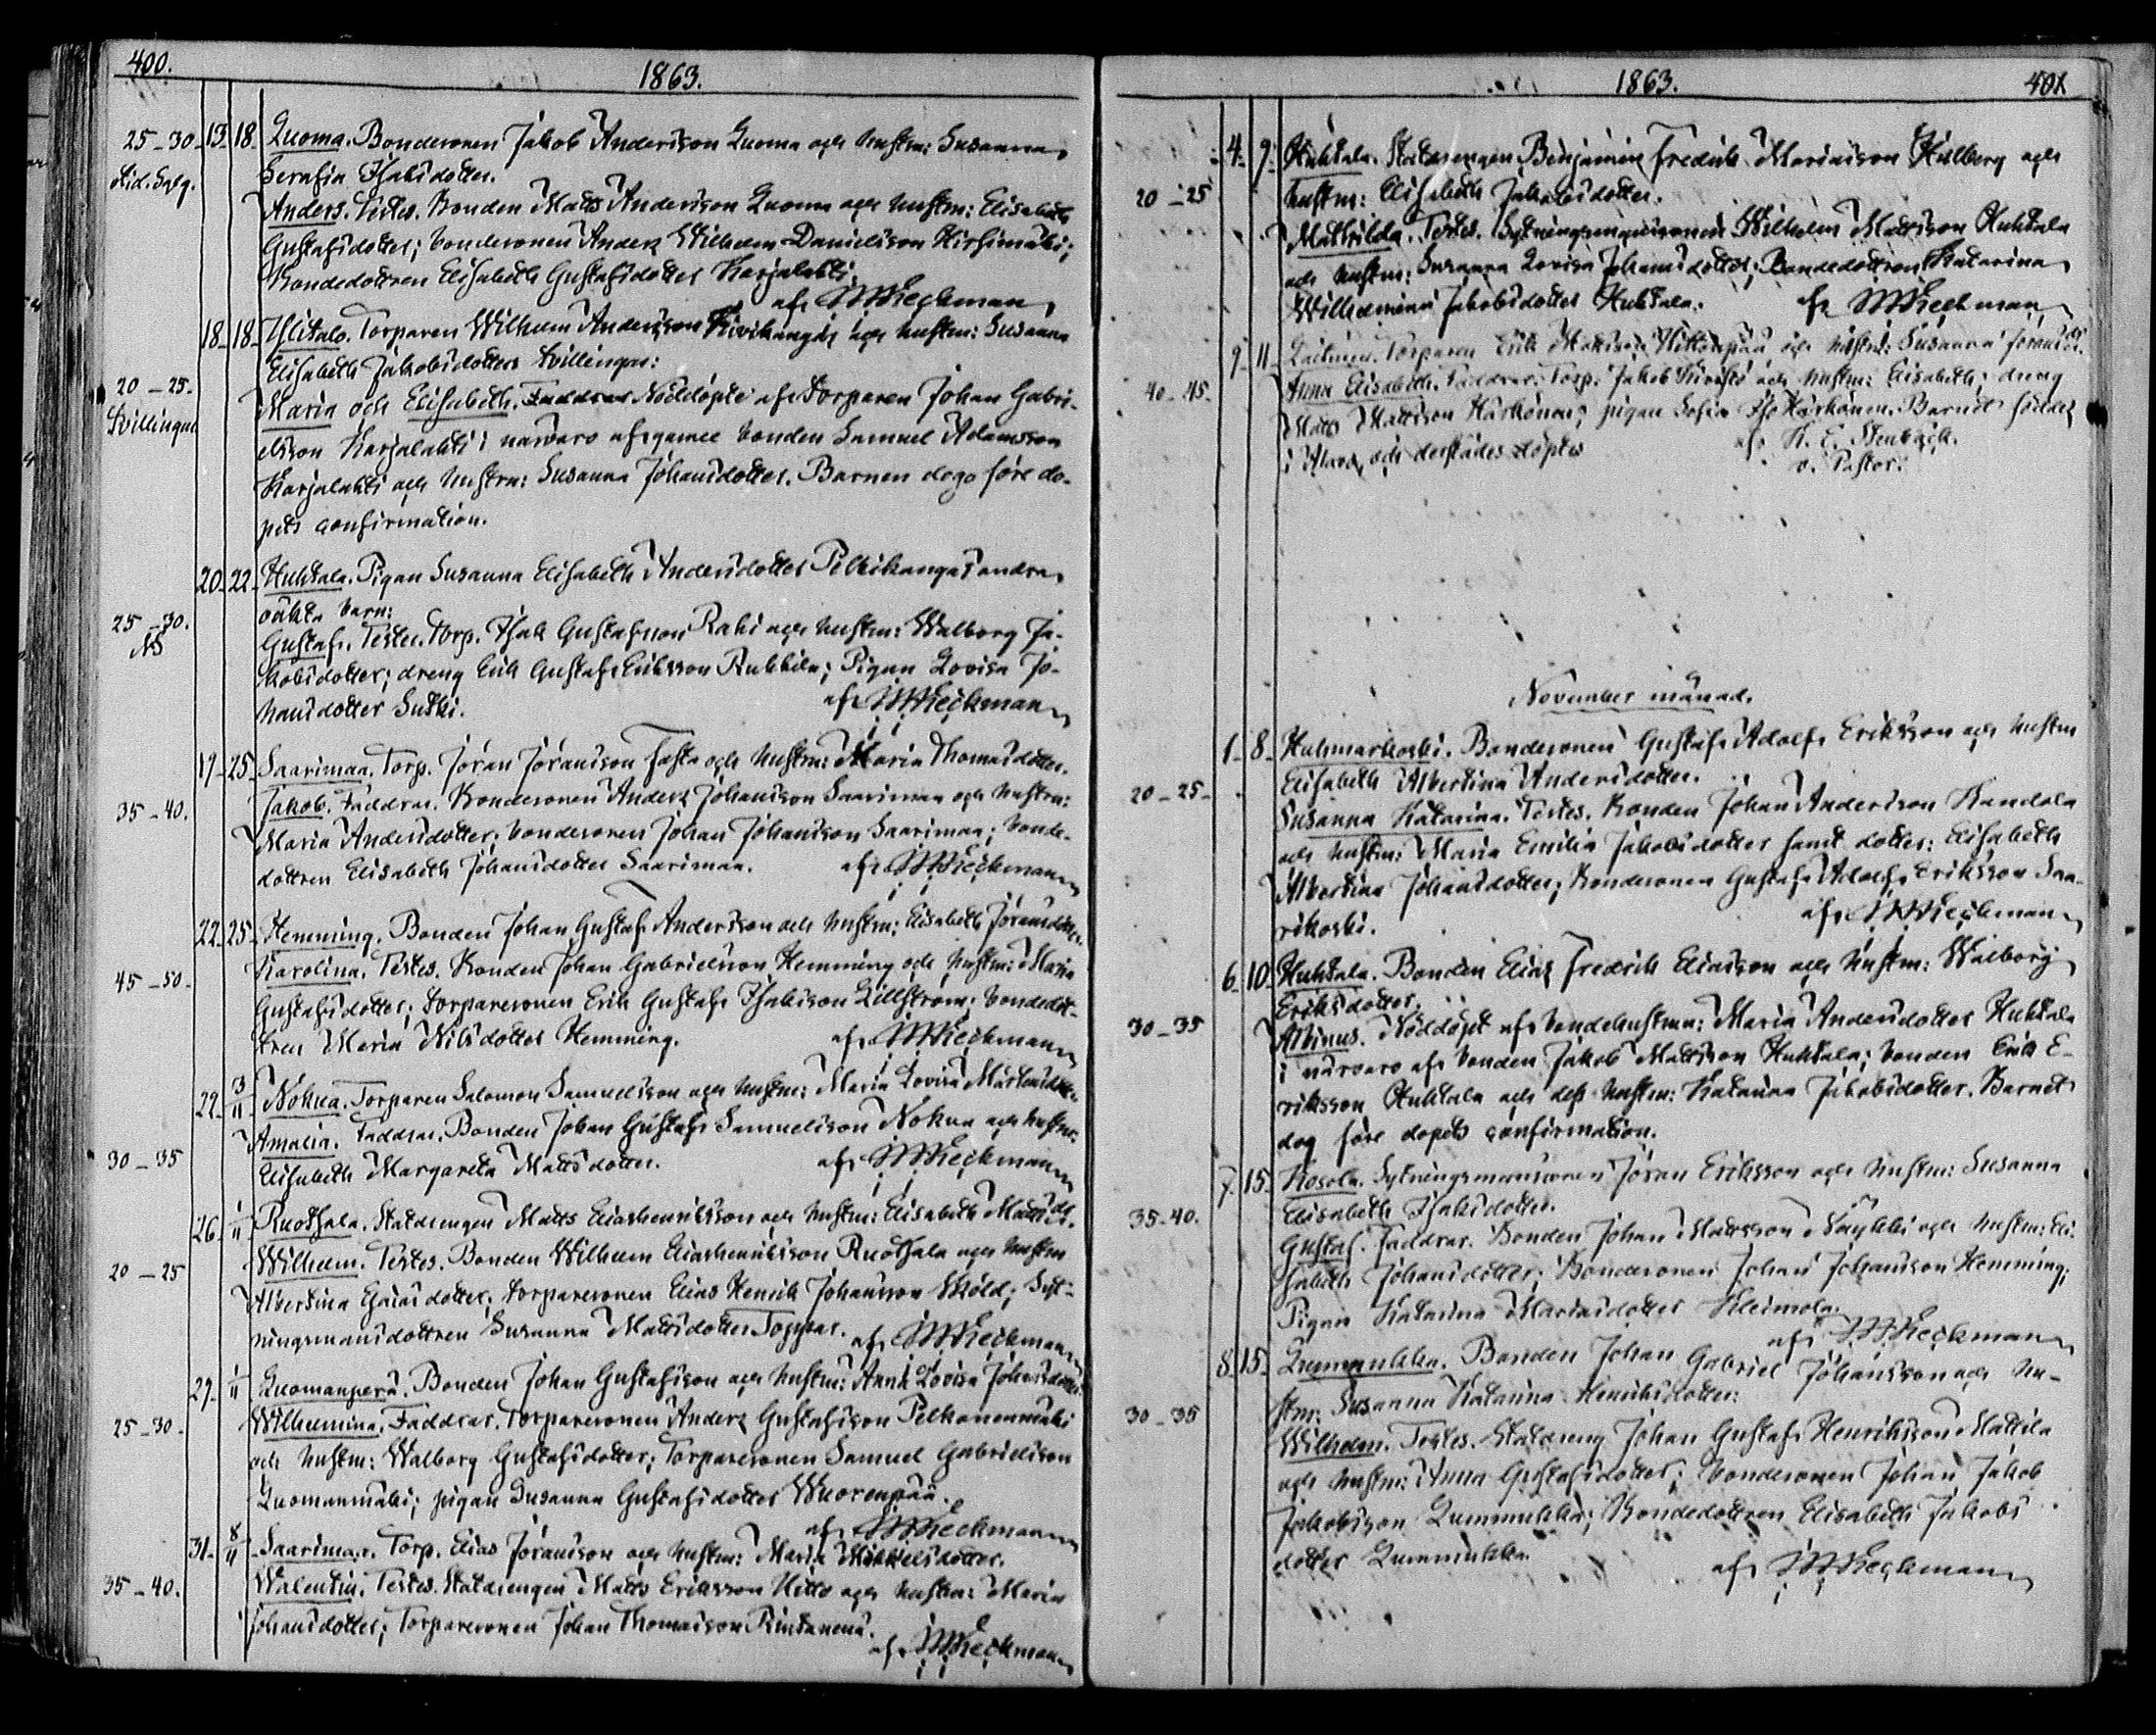 400.
1863.
25-30 13 18 Luoma. Bondesonen Jakob Andersson Luoma och hustru: Susanna
Serafia Isaksdotter.
Anders. Testes. Bonden Matts Andersson Luoma och hustru: Elisabeth
Gustafsdotter; bondesonen Anders Wilhelm Danielsson Hirsimäki;
Bondedottren Elisabeth Gustafsdotter Karjalahti.
af
18 18 Ylitalo. Torparen Wilhelm Andersson Kivikangas och hustru: Susanna
Elisabeth Jakobsdotters tvillingar:
20-25.
Tvillingar
Maria och Elisabeth. Faddrar Nöddöpte af torparen Johan Gabri-
elsson Karjalahti i närvaro af gamle bonden Samuel Adamsson
Karjalahti och hustru: Susanna Johansdotter. Barnen dogo före do-
pets confirmation.
20 22 Huhtala. Pigan Susanna Elisabeth Andersdotter Pelkikangas andra
oäkta barn:
25-30.
Gustaf. Testes. Torp. Isak Gustafsson Rahi och hustru: Walborg Ja-
kobsdotter; dreng Erik Gustaf Eriksson Ruhkila; Pigan Lovisa Jo-
hansdotter Sutki.
af
19 25 Saarimaa. Torp. Jöran Jöransson Fasta och hustru: Maria Thomasdotter.
35-40.
Jakob. Faddrar. Bondesonen Anders Johansson Saarimaa och hustru:
Maria Andersdotter; bondesonen Johan Johansson Saarimaa; bonde-
dottren Elisabeth Johansdotter Saarimaa.
af
22 25 Hemming. Bonden Johan Gustaf Andersson och hustru: Elisabeth Jöransdotter.
45-50
Karolina. Testes. Bonden Johan Gabrielsson Hemming och hustru: Maria
Gustafsdotter; torparesonen Erik Gustaf Isaksson Lillström; bondedot-
tren Maria Nilsdotter Hemming.
af
29 3/11 Nokua. Torparen Salomon Samuelsson och hustru: Maria Lovisa
30-35
Amalia. Faddrar. Bonden Johan Gustaf Samuelsson Nokua och hustru:
Elisabeth Margareta Mattsdotter.
af
26 1/11 Ruotsala. Statdrengen Matts Eliashenriksson och hustru: Elisabeth Mattsd.
20-25
Wilhelm. Testes. Bonden Wilhelm Eliashenriksson Ruotsala och hustru
Albertina Esaiasdotter; torparesonen Elias Henrik Johansson Sköld; Syt-
ningsmansdottren Susanna Mattsdotter Toppar.
af
29 1/11 Luomanperä. Bonden Johan Gustafsson och hustru: Anna Lovisa Johansdotter.
25-30.
Wilhelmina. Faddrar. Torparesonen Anders Gustafsson Pelkonenmäki
och hustru: Walborg Gustafsdotter; Torparesonen Samuel Gabrielsson
Luomanmäki; pigan Susanna Gustafsdotter Wuorenpää.
af
31 8/11 Saarimaa. Torp. Elias Jöransson och hustru: Maria Mikkelsdotter.
35-40.
Walentin. Testes. Statdrengen Matts Eriksson Hitto och hustru: Maria
Johansdotter; Torparesonen Johan Thomasson Rintanena.
af
1863.
401
4 9 Huhtala. Statdrengen Benjamin Fredrik Mariasson Hallberg och
20-25
hustru: Elisabeth Jakobsdotter.
Mathilda. Testes. Sytningsmanssonen Wilhelm Mattsson Huhtala
och hustru: Susanna Lovisa Johansdotter; Bondedottren Katarina
Wilhelmina Jakobsdotter Huhtala.
af
9 11 Torparen Erik Mattsson och hustru: Susanna Jöransdr.
40-45
Anna Elisabeth. Faddrar: Torp. Jakob och hustru: Elisabeth; dreng
Matts Mattsson Härkönen; pigan Sofia Härkönen. Barnet föddes
i Alavo och derstädes döptes
af K. E. Stenbäck.
v. Pastor.
November månad.
1 8 Huhmarkoski. Bondesonen Gustaf Adolf Eriksson och hustru
20-25
Elisabeth Albertina Andersdotter.
Susanna Katarina. Testes. Bonden Johan Andersson Kandola
och hustru: Maria Emilia Jakobsdotter samt dotter: Elisabeth
Albertina Johansdotter; Bondesonen Gustaf Adolf Eriksson Saa-
rikoski.
af
6 10 Huhtala. Bonden Elias Fredrik Eliasson och hustru: Walborg
Eriksdotter.
30-35
Albinus. Nöddöpt af bondehustrun: Maria Andersdotter Huhtala
i närvaro af bonden Jakob Mattsson Huhtala; bonden Erik E-
riksson Huhtala och dess hustru: Katarina Jakobsdotter. Barnet
dog före dopets confirmation.
7 15 Kosola. Sytningsmanssonen Jöran Eriksson och hustru: Susanna
Elisabeth Isaksdotter.
35-40.
Gustaf. Faddrar. Bonden Johan Mattsson Näykki och hustru: Eli-
sabeth Johansdotter; Bondesonen Johan Johansson Hemming;
Pigan Katarina Mariasdotter Kleimola.
af
8 15 Lummukka. Bonden Johan Gabriel Johansson och hu-
stru: Susanna Katarina Henriksdotter:
30-35
Wilhelm. Testes. Statdreng Johan Gustaf Henriksson Mattila
och hustru: Anna Gustafsdotter; bondesonen Johan Jakob
Jakobsson Lummukka; Bondedottren Elisabeth Jakobs
dotter Lummukka.
af